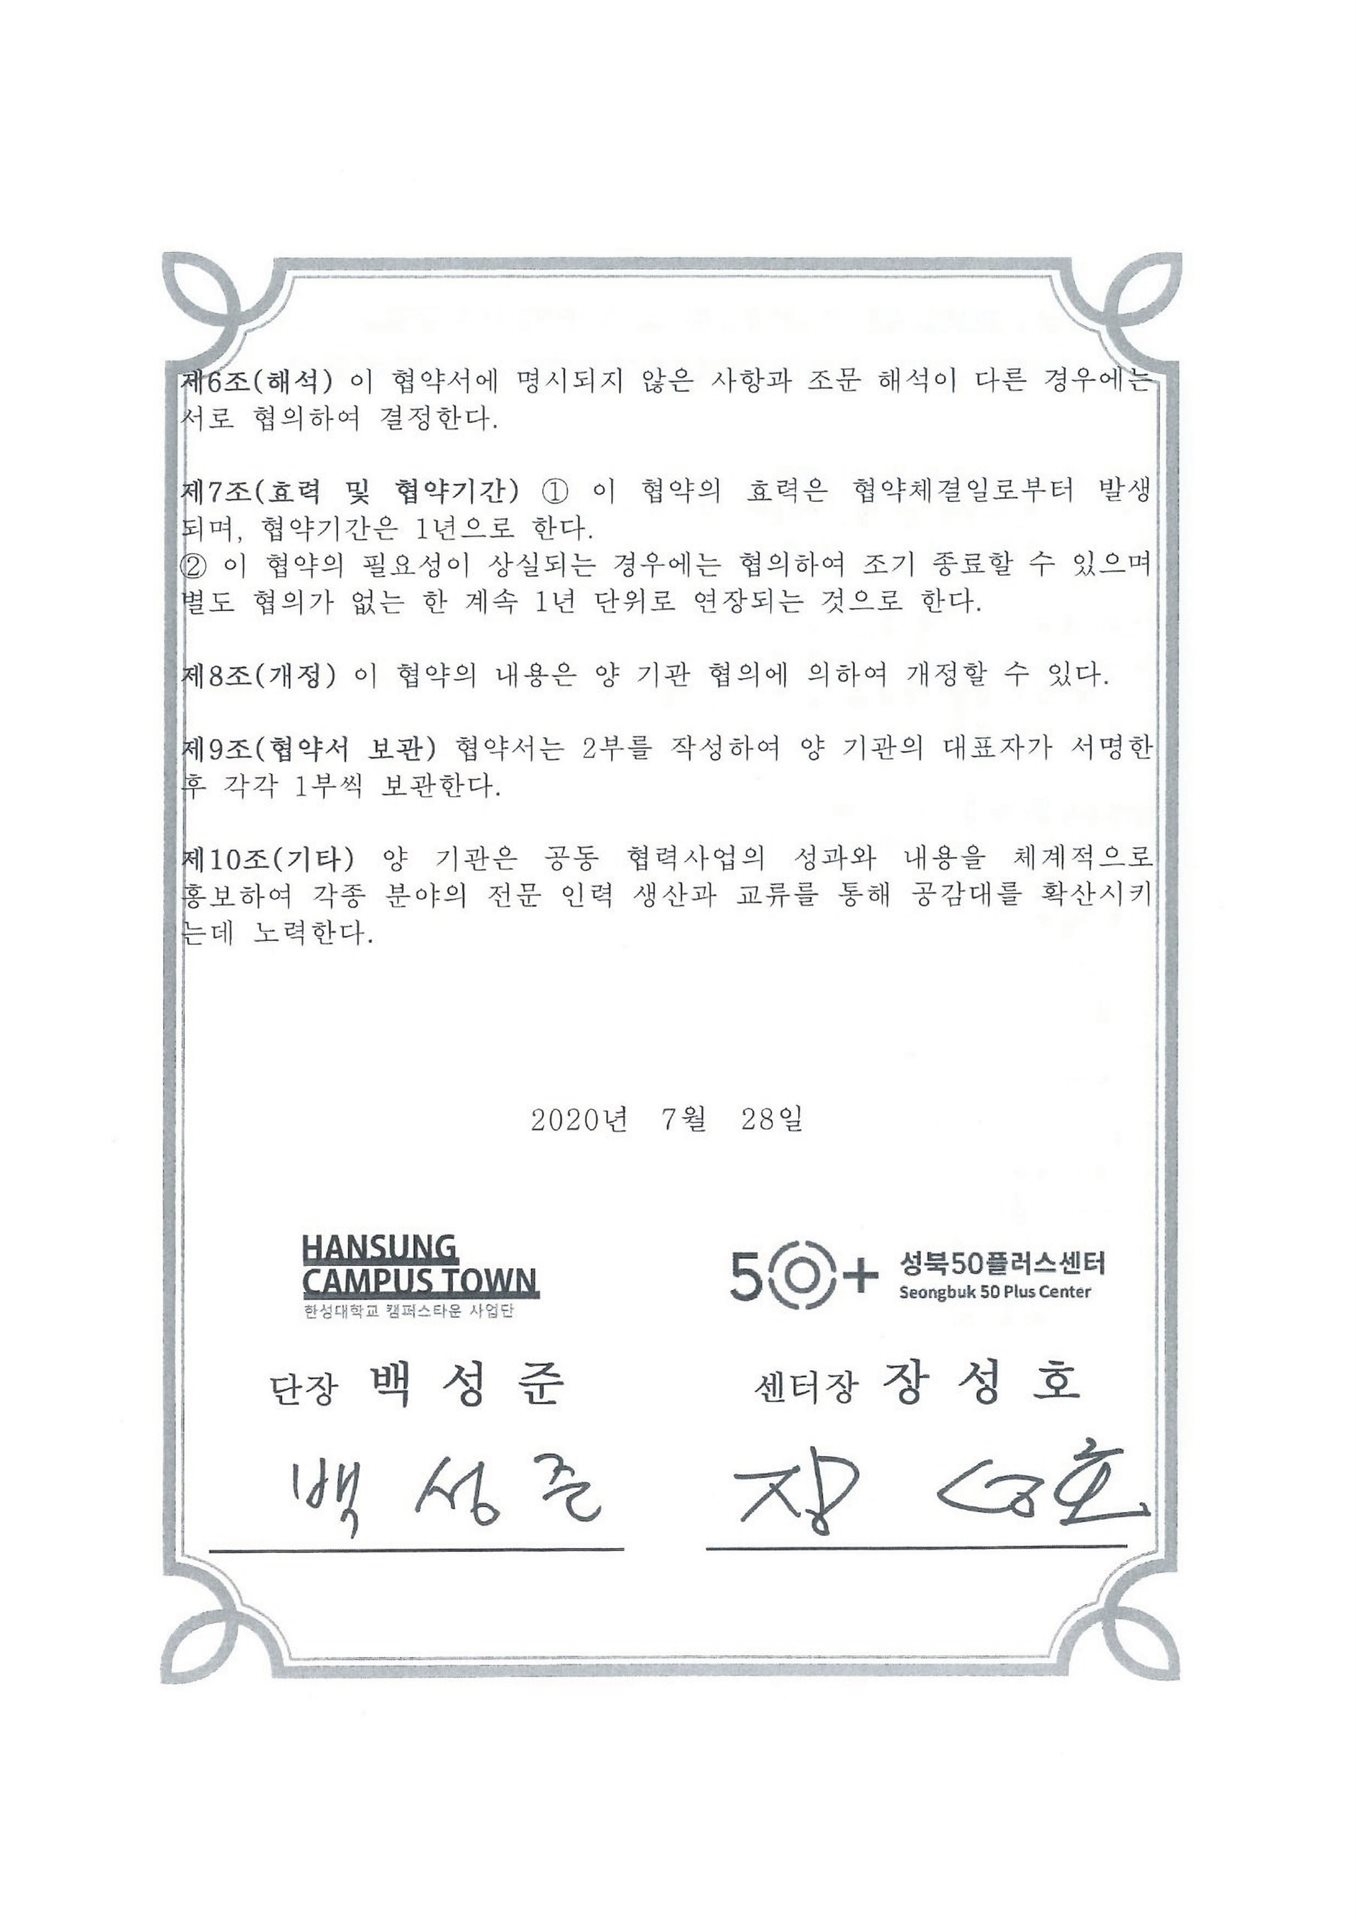 제6조(해석) 이 협약서에 명시되지 않은 사항과 조문 해석이 다른 경우에는
서로 협의하여 결정한다.
제7조(효력 및 협약기간) ① 이 협약의 효력은 협약체결일로부터 발생
되며, 협약기간은 1년으로 한다.
② 이 협약의 필요성이 상실되는 경우에는 협의하여 조기 종료할 수 있으며
별도 협의가 없는 한 계속 1년 단위로 연장되는 것으로 한다.
제8조(개정) 이 협약의 내용은 양 기관 협의에 의하여 개정할 수 있다.
제9조(협약서 보관) 협약서는 2부를 작성하여 양 기관의 대표자가 서명한
후 각각 1부씩 보관한다.
제10조(기타) 양 기관은 공동 협력사업의 성과와 내용을 체계적으로
홍보하여 각종 분야의 전문 인력 생산과 교류를 통해 공감대를 확산시키
는데 노력한다.
2020년 7월 28일
HANSUNG
CAMPUS TOWN
한성대학교 캠퍼스타운 사업단
단장 백 성 준
백 성 준
50+ 성북50플러스센터
Seongbuk 50 Plus Center
센터장 장 성 호
장 성호